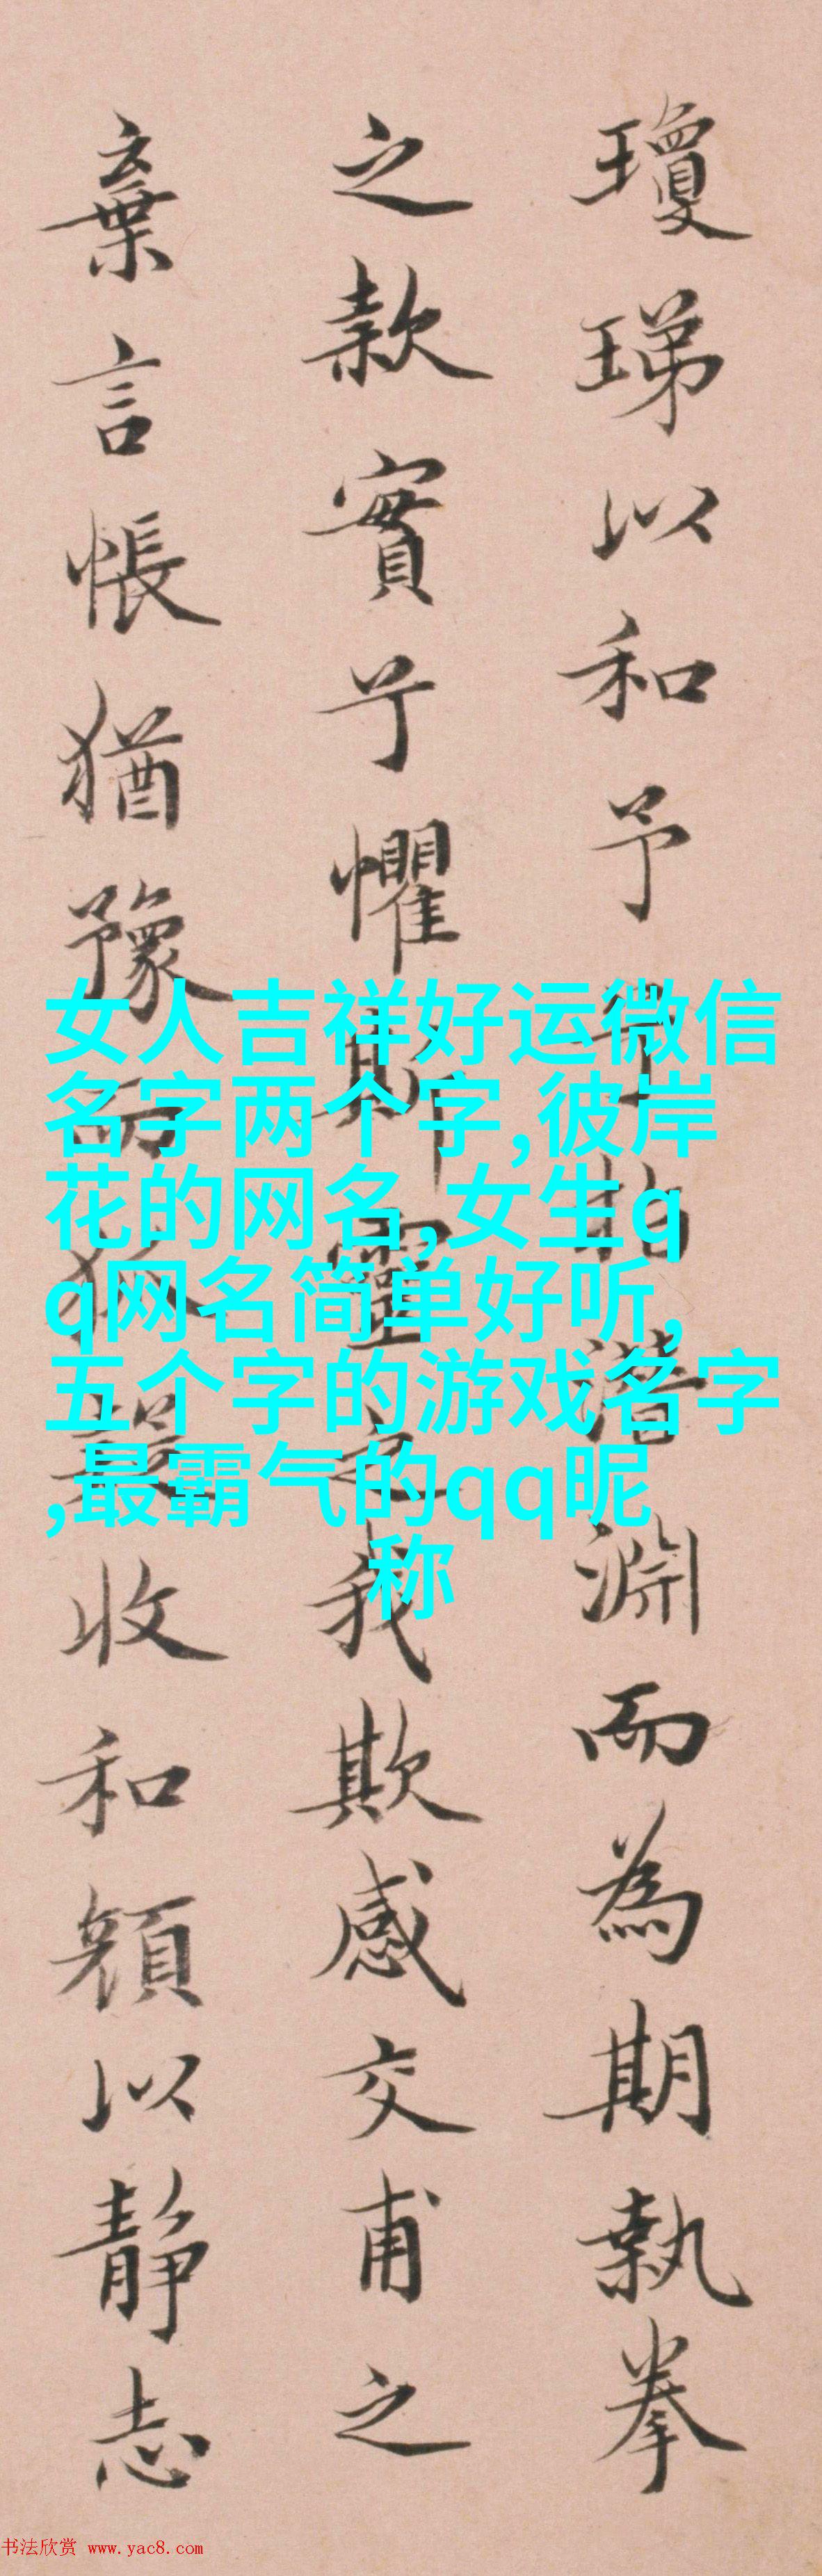 瓊珶以和予兮指潛淵而為期執拳
之款實兮懼斯靈之我欺感交甫之
棄言悵猶豫而狐疑收和顏以靜志
女人吉祥好运微信
名字两个字,彼岸
花的网名,女生q
q网名简单好听,
五个字的游戏名字
,最霸气的qq昵
称
书法欣赏 www.yac8.com